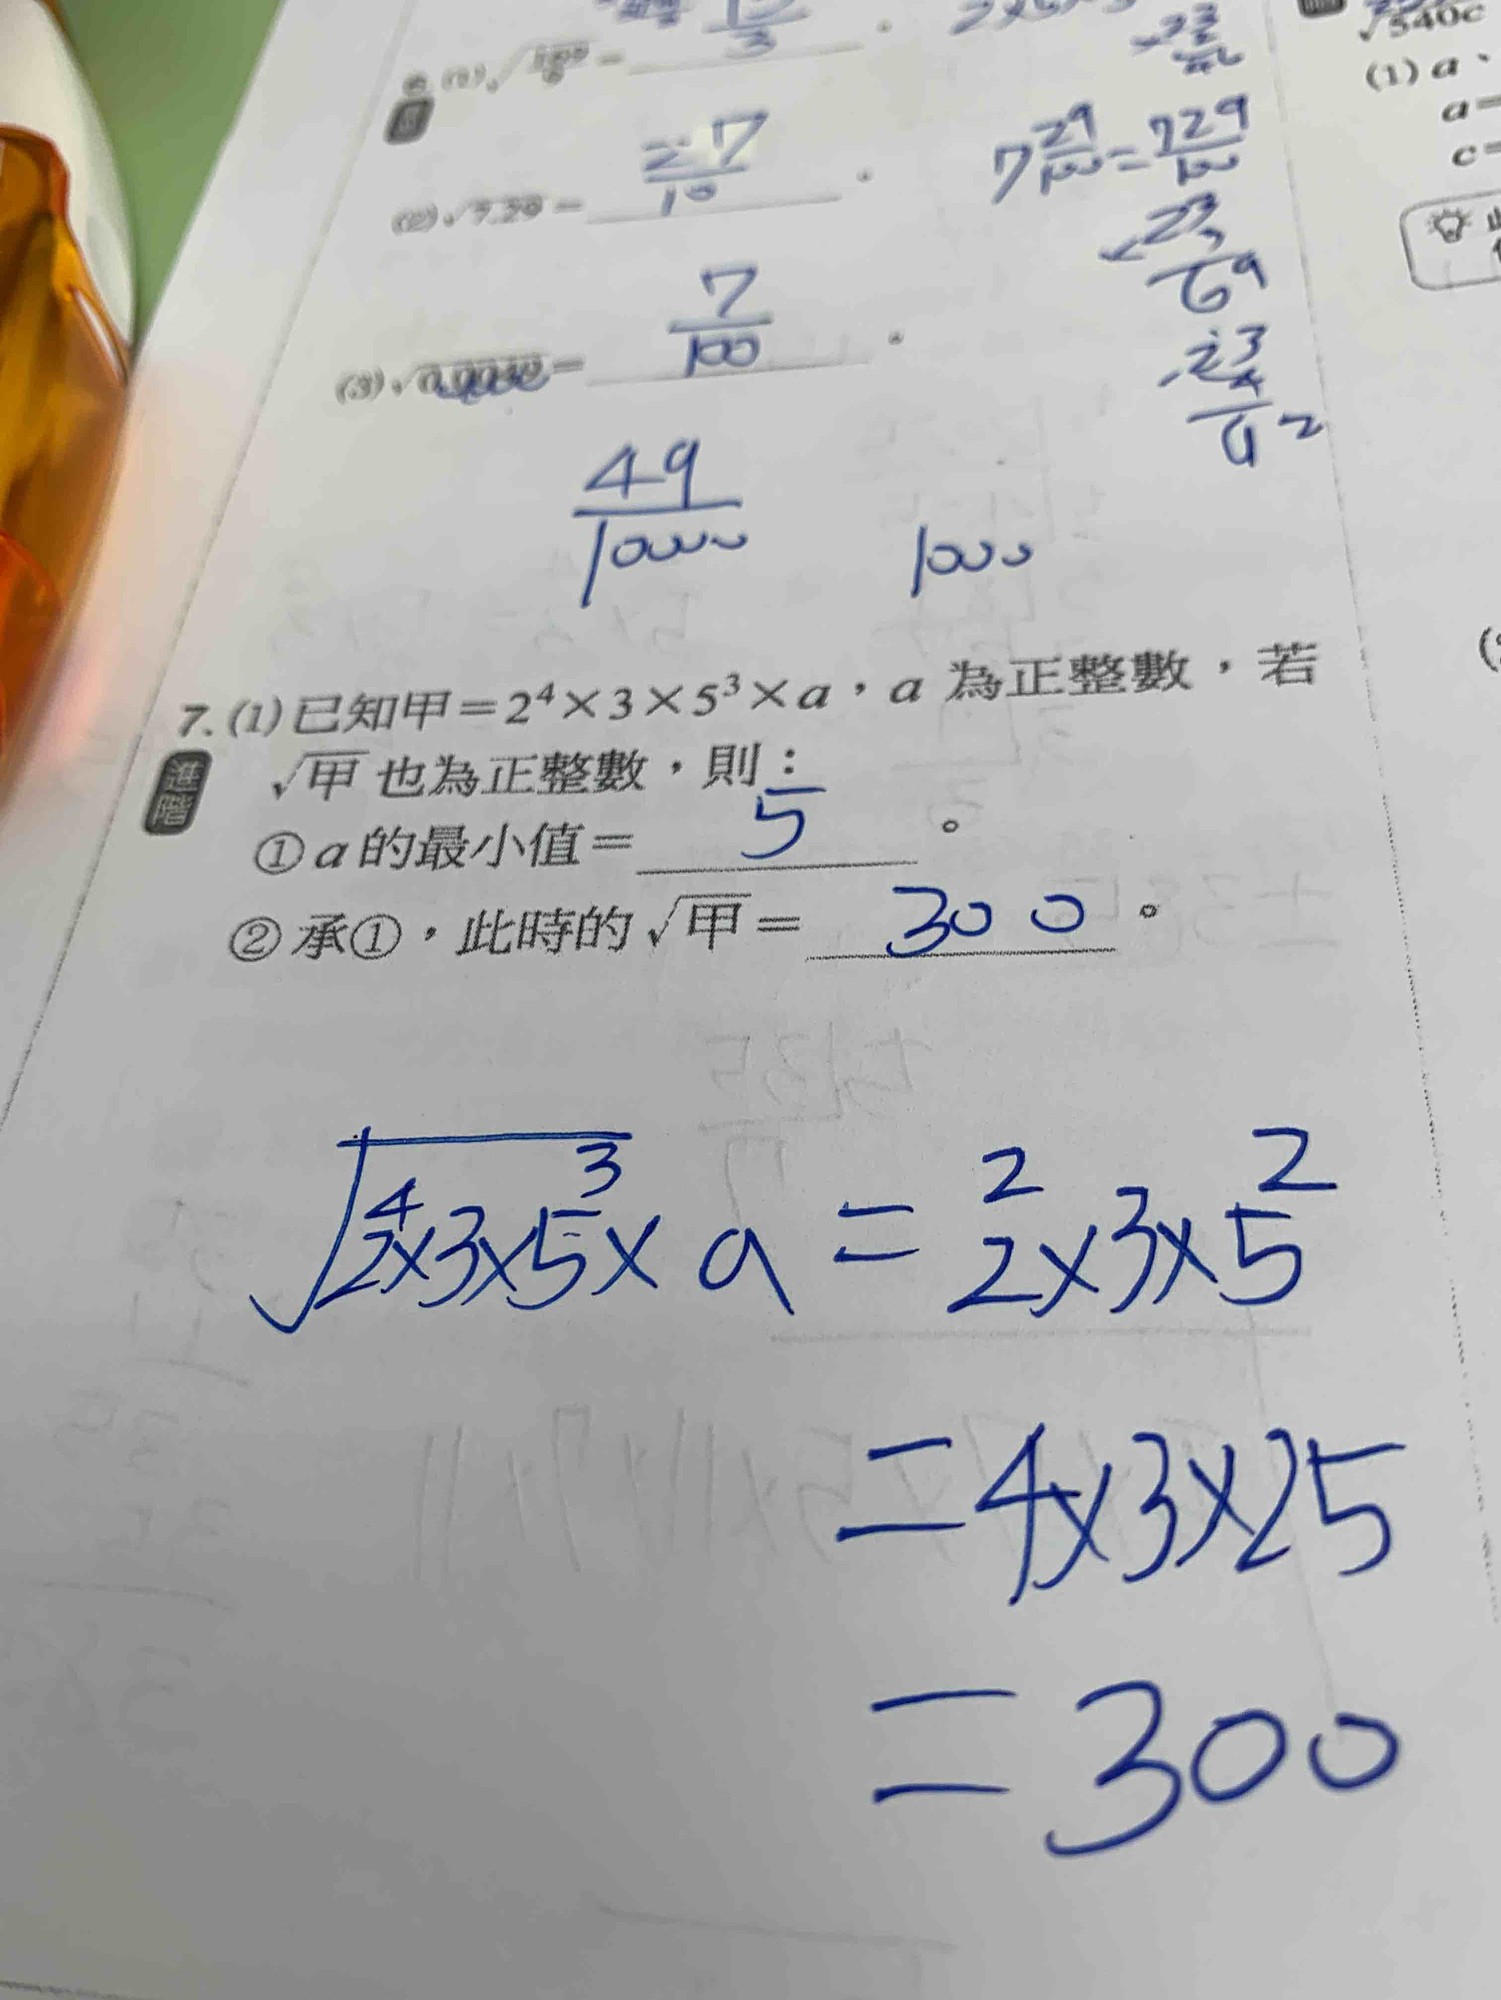 √540c
(1) a、
a=
c=
(2) √7.29 = 27/10 。 7 29/100 = 729/100
(3) √0.0049 = 7/100 。
49/10000 1000
7. (1) 已知甲=2⁴×3×5³×a，a 為正整數，若
進階
√甲 也為正整數，則：
① a 的最小值= 5 。
② 承①，此時的 √甲 = 300 。
√2⁴×3×5³× a = 2²×3×5²
=4×3×25
=300